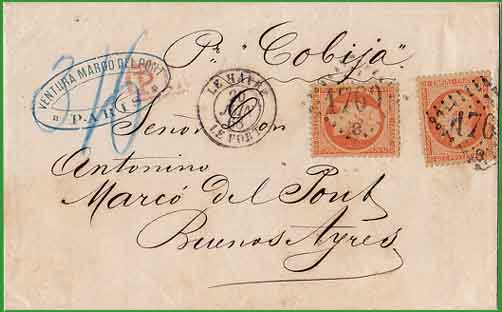 Pr "Cobija".
VENTURA MARCO DEL PONT
PARIS
LE HAVRE
LE PORT
1769
176
Señor Don
Antonino
Marcó del Pont
Buenos Ayres